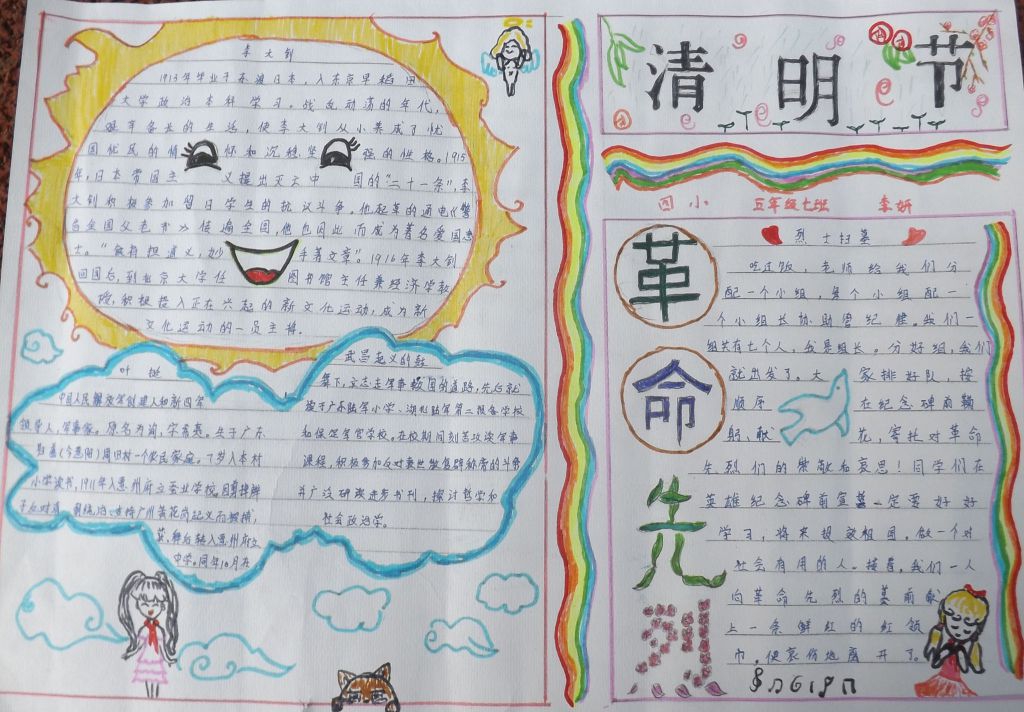 李大钊
1913年毕业于东渡日本,入东京早稻田
大学政治本科学习。战乱动荡的年代,
艰辛备长的生活,使李大钊从小养成了忧
国忧民的情怀和沉稳坚强的性格。1915
年,日本帝国主义提出灭亡中国的“二十一条”,李
大钊积极参加留日学生的抗议斗争。他起草的通电《警
告全国父老书》传遍全国,他也因此而成为著名爱国志
士。“铁肩担道义,妙手著文章”。1916年李大钊
回国后,到北京大学任图书馆主任兼经济学教
授,积极投入正在兴起的新文化运动,成为新
文化运动的一员主将。
叶挺
中国人民解放军创建人和新四军
领导人,军事家。原名为询,字希夷。生于广东
归善(今惠阳)周田村一个农民家庭。7岁入本村
小学读书,1911年入惠州府立蚕业学校,因剪掉辫
子反对清
中学。同年10月在
武昌起义的鼓
舞下,立志走军事救国的道路,先后就
读于广东陆军小学、湖北陆军第二预备学校
和保定军官学校。在校期间刻苦攻读军事
课程,积极参加反对袁世凯复辟称帝的斗争
并广泛研读进步书刊,探讨哲学和
社会政治学。
清明节
四小 五年级七班 李妍
革命先烈
烈士扫墓
吃过饭,老师给我们分
配一个小组,每个小组配一
个小组长协助管纪律。我们一
组共有七个人,我是组长。分好组,我们
就出发了。大家排好队,按
顺序在纪念碑前鞠
躬、献花,寄托对革命
先烈们的崇敬和哀思!同学们在
英雄纪念碑前宣誓一定要好好
学习,将来报效祖国,做一个对
社会有用的人。接着,我们一人
向革命先烈的墓前献
上一条鲜红的红领
巾,便哀伤地离开了。